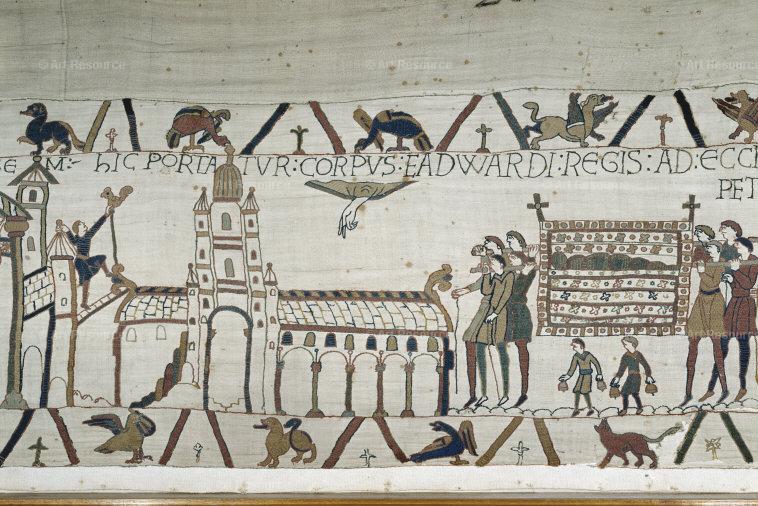 EM:- hIC PORTATVR: CORPVS: EADWARDI: REGIS: AD: ECCL
PET
© Art Resource
© Art Resource
© Art Resource